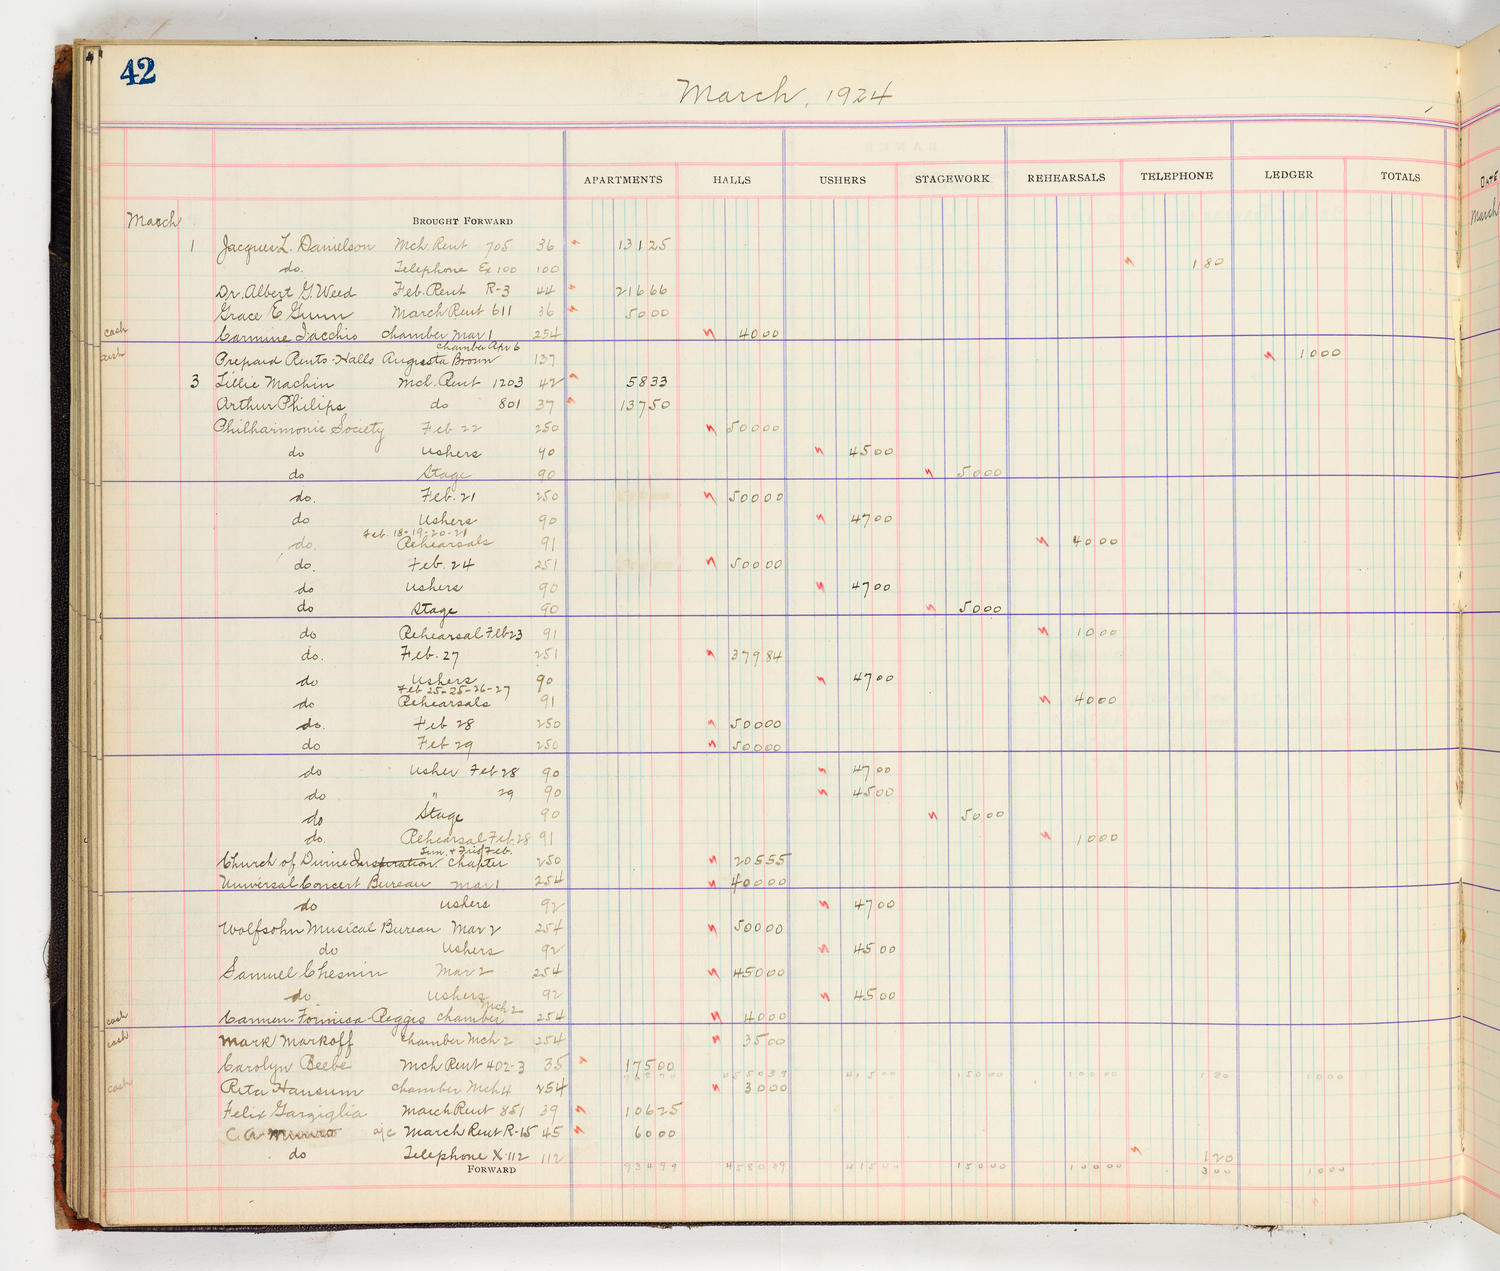 42
March, 1924
APARTMENTS HALLS USHERS STAGEWORK REHEARSALS TELEPHONE LEDGER TOTALS
March BROUGHT FORWARD
1 Jacques L. Danielson Mch Rent 705 36 131 25
do. Telephone Ex 100 100 1 80
Dr. Albert G. Weed Feb. Rent R-3 44 216 66
Grace E Gunn March Rent 611 36 50 00
cash Carmine Iacchio chamber Mar 1 254 40 00
chamber Apr 6
cash Prepaid Rents-Halls Augusta Brown 137 10 00
3 Lillie Machin Mch. Rent 1203 42 58 33
Arthur Philips do 801 37 137 50
Philharmonic Society Feb 22 250 500 00
do Ushers 90 45 00
do Stage 90 50 00
do. Feb. 21 250 500 00
do Ushers 90 47 00
Feb. 18-19-20-21
do. Rehearsals 91 40 00
do. Feb. 24 251 500 00
do Ushers 90 47 00
do Stage 90 50 00
do Rehearsal Feb 23 91 10 00
do. Feb. 27 251 379 84
do Ushers 90 47 00
Feb 25-25-26-27
do Rehearsals 91 40 00
do. Feb 28 250 500 00
do Feb 29 250 500 00
do Usher Feb 28 90 47 00
do " 29 90 45 00
do Stage 90 50 00
do. Rehearsal Feb. 28 91 10 00
Sun. + Frid Feb.
Church of Divine Inspiration. Chapter 250 205 55
Universal Concert Bureau Mar 1 254 400 00
do Ushers 92 47 00
Wolfsohn Musical Bureau Mar 2 254 500 00
do Ushers 92 45 00
Samuel Chesnin Mar 2 254 450 00
do Ushers 92 45 00
Mch 2
cash Carmen-Formica-Reggis chamber 254 40 00
cash Mark Markoff chamber Mch 2 254 35 00
Carolyn Beebe Mch Rent 402-3 35 175 00
4550 39 415 00 150 00 100 00 1 80 10 00
cash Rita Hansum chamber Mch 4 254 30 00
Felix Garziglia March Rent 851 39 106 25
C. A. Munro a/c March Rent R-15 45 60 00
do Telephone X-112 112 1 20
FORWARD 934 99 4580 39 415 00 150 00 100 00 3 00 10 00
DATE
March